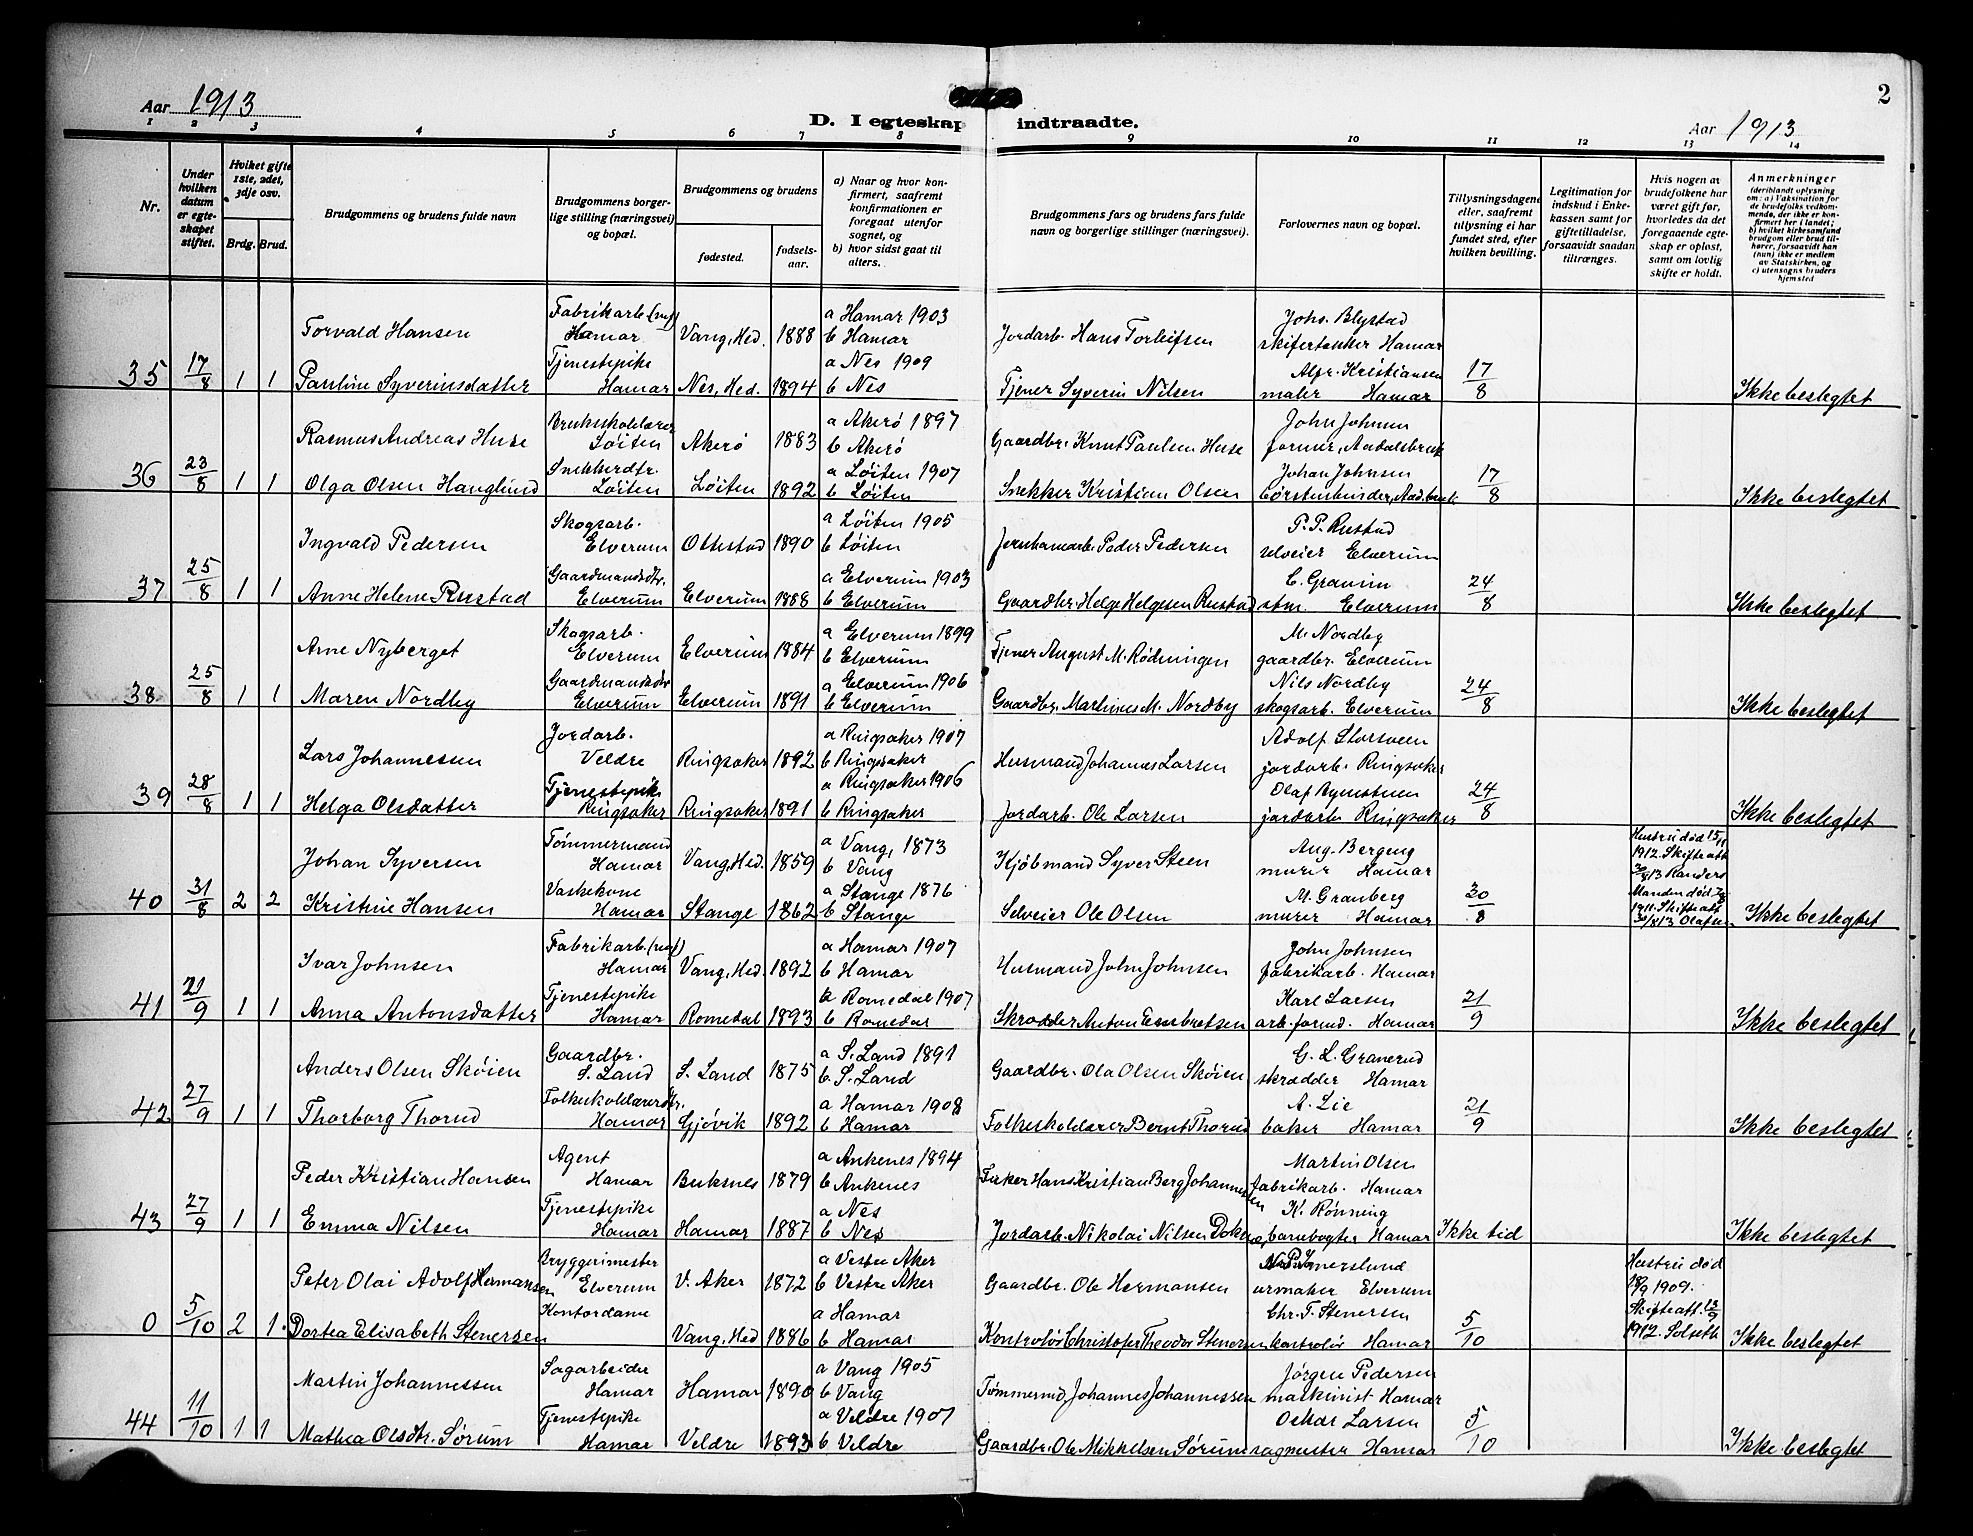 2
Aar 1913
D. I egteskap indtraadte.
Aar 1913
1 2 3 4 5 6 7 8 9 10 11 12 13 14
Nr.
Under hvilken datum er egteskapet stiftet.
Hvilket gifte 1ste, 2det, 3dje osv.
Brdg. Brud.
Brudgommens og brudens fulde navn
Brudgommens borgerlige stilling (næringsvei) og bopæl.
Brudgommens og brudens
fødested.
fødselsaar.
a) Naar og hvor konfirmert, saafremt konfirmationen er foregaat utenfor sognet, og
b) hvor sidst gaat til alters.
Brudgommens fars og brudens fars fulde navn og borgerlige stillinger (næringsvei).
Forlovernes navn og bopæl.
Tillysningsdagene eller, saafremt tillysning ei har fundet sted, efter hvilken bevilling.
Legitimation for indskud i Enkekassen samt for giftetilladelse, forsaavidt saadan tiltrænges.
Hvis nogen av brudefolkene har været gift før, hvorledes da det foregaaende egteskap er opløst, samt om lovlig skifte er holdt.
Anmerkninger
(deriblandt oplysning om: a) Vaksination for de brudefolks vedkommende, der ikke er konfirmert her i landet; b) hvilket kirkesamfund brudgom eller brud tilhører, forsaavidt han (hun) ikke er medlem av Statskirken, og c) utensogns bruders hjemsted
Torvald Hansen Fabrikarb. Hamar Vang, Hed. 1888 a Hamar 1903 b Hamar Jordarb. Hans Torleifsen Johs. Blystad skifertekker Hamar
35 17/8 1 1 Pauline Syverinsdatter Tjenestepike Hamar Nes, Hed. 1894 a Nes 1909 b Nes Tjener Syverin Nilsen Alfr. Kristiansen maler Hamar 17/8 Ikke beslegtet
Rasmus Andreas Huse Brukskolelærer Løiten Akerø 1883 a Akerø 1897 b Akerø Gaardbr. Knut Paulsen Huse John Johnsen former, Aadalsbruk
36 23/8 1 1 Olga Olsen Hauglund Snekkerdtr. Løiten Løiten 1892 a Løiten 1907 b Løiten Snekker Kristian Olsen Johan Johnsen børstenbinder, Aad.bruk. 17/8 Ikke beslegtet
Ingvald Pedersen Skogsarb. Elverum Ottestad 1890 a Løiten 1905 b Løiten Jernhamarb. Peder Pedersen P. P. Rustad selveier Elverum
37 25/8 1 1 Anne Helene Rustad Gaardmandsdtr. Elverum Elverum 1888 a Elverum 1903 b Elverum Gaardbr. Helge Helgesen Rustad stm. Elverum 24/8 Ikke beslegtet
Arne Nyberget Skogsarb. Elverum Elverum 1884 a Elverum 1899 b Elverum Tjener August M. Rødningen M. Nordby gaardbr. Elverum
38 25/8 1 1 Maren Nordby Gaardmandsdtr Elverum Elverum 1891 a Elverum 1906 b Elverum Gaardbr. Martinus M. Nordby Nils Nordby skogsarb. Elverum 24/8 Ikke beslegtet
Lars Johannesen Jordarb. Veldre Ringsaker 1892 a Ringsaker 1907 b Ringsaker Husmand Johannes Larsen Adolf Storsveen jordarb. Ringsaker
39 28/8 1 1 Helga Olsdatter Tjenestepike Ringsaker Ringsaker 1891 a Ringsaker 1906 b Ringsaker Jordarb. Ole Larsen Olaf jordarb. Ringsaker 24/8 Ikke beslegtet
Johan Syversen Tømmermand Hamar Vang, Hed. 1859 a Vang, 1873 b Vang Kjøbmand Syver Steen Aug. Bergeng murer Hamar Hustru død 15/11 1912. Skifteatt 30/8 13 Randers
40 31/8 2 2 Kristine Hansen Vaskekone Hamar Stange 1862 a Stange 1876 b Stange Selveier Ole Olsen M. Granberg murer Hamar 30/8 Manden død 1911. Skifteatt 30/8 13 Olafsen Ikke beslegtet
Ivar Johnsen Fabrikarb. Hamar Vang, Hed. 1892 a Hamar 1907 b Hamar Husmand John Johnsen John Johnsen fabrikarb. Hamar
41 21/9 1 1 Anna Antonsdatter Tjenestepike Hamar Romedal 1893 a Romedal 1907 b Romedal Skrædder Anton Embretsen Karl Larsen arb.formd. Hamar 21/9 Ikke beslegtet
Anders Olsen Skøien Gaardbr. S. Land S. Land 1875 a S. Land 1891 b S. Land Gaardbr. Ola Olsen Skøien G. L. Granerud skrædder Hamar
42 27/9 1 1 Thorborg Thorud Folkeskolelærerdtr. Hamar Gjøvik 1892 a Hamar 1908 b Hamar Folkeskolelærer Bernt Thorud A. Lie baker Hamar 21/9 Ikke beslegtet
Peder Kristian Hansen Agent Hamar Buksnes 1879 a Ankenes 1894 b Ankenes Fisker Hans Kristian Berg Johannessen Martin Olsen fabrikarb. Hamar
43 27/9 1 1 Emma Nilsen Tjenestepike Hamar Hamar 1887 a Nes b Nes Jordarb. Nikolai Nilsen K. Rønning Hamar Ikke tid Ikke beslegtet
Peter Olai Adolf Hermansen Bryggerimester Elverum V. Aker 1872 a Vestre Aker b Vestre Aker Gaardbr. Ole Hermansen urmaker Elverum Hustru død 18/9 1909.
0 5/10 2 1. Dortea Elisabeth Stenersen Kontordame Vang, Hed 1886 a Hamar b Hamar Kontrolør Christofer Theodor Stenersen Chr. T. Stenersen kontrolør Hamar 5/10 Skifteatt. 12/9 1912. Solseth Ikke beslegtet
Martin Johannessen Sagarbeider Hamar Hamar 1890 a Vang 1905 b Vang Tømmermd Johannes Johannessen Jørgen Pedersen maskinist Hamar
44 11/10 1 1 Mathea Olsdtr. Sørum Tjenestepike Hamar Veldre 1893 a Veldre 1907 b Veldre Gaardbr. Ole Mikkelsen Sørum Oskar Larsen sagmester Hamar 5/10 Ikke beslegtet